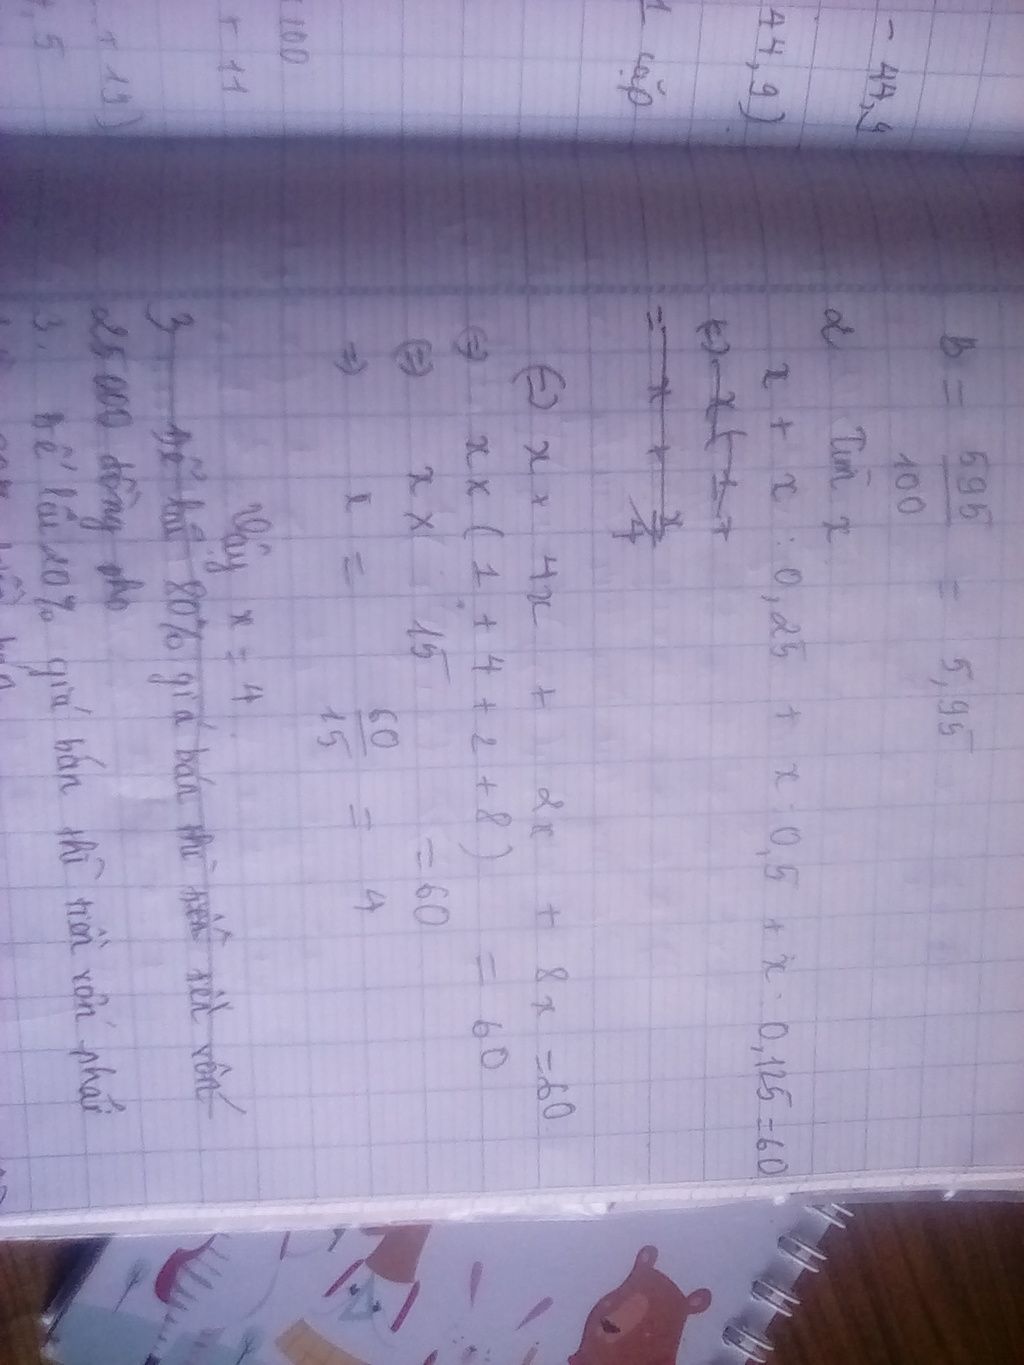 - 44,9
44,9)
1 cặp
100
+ 11
+ 19)
5
B = 595/100 = 5,95
2 Tìm x
x + x : 0,25 + x : 0,5 + x : 0,125 = 60
= x + x/4
(=) x + 4x + 2x + 8x = 60
(=) x x (1 + 4 + 2 + 8) = 60
(=) x x 15 = 60
=) x = 60/15 = 4
Vậy x = 4
3 Để lãi 80% giá bán thì tiền vốn
25 000 đồng
3. Để lãi 10% giá bán thì tiền vốn phải